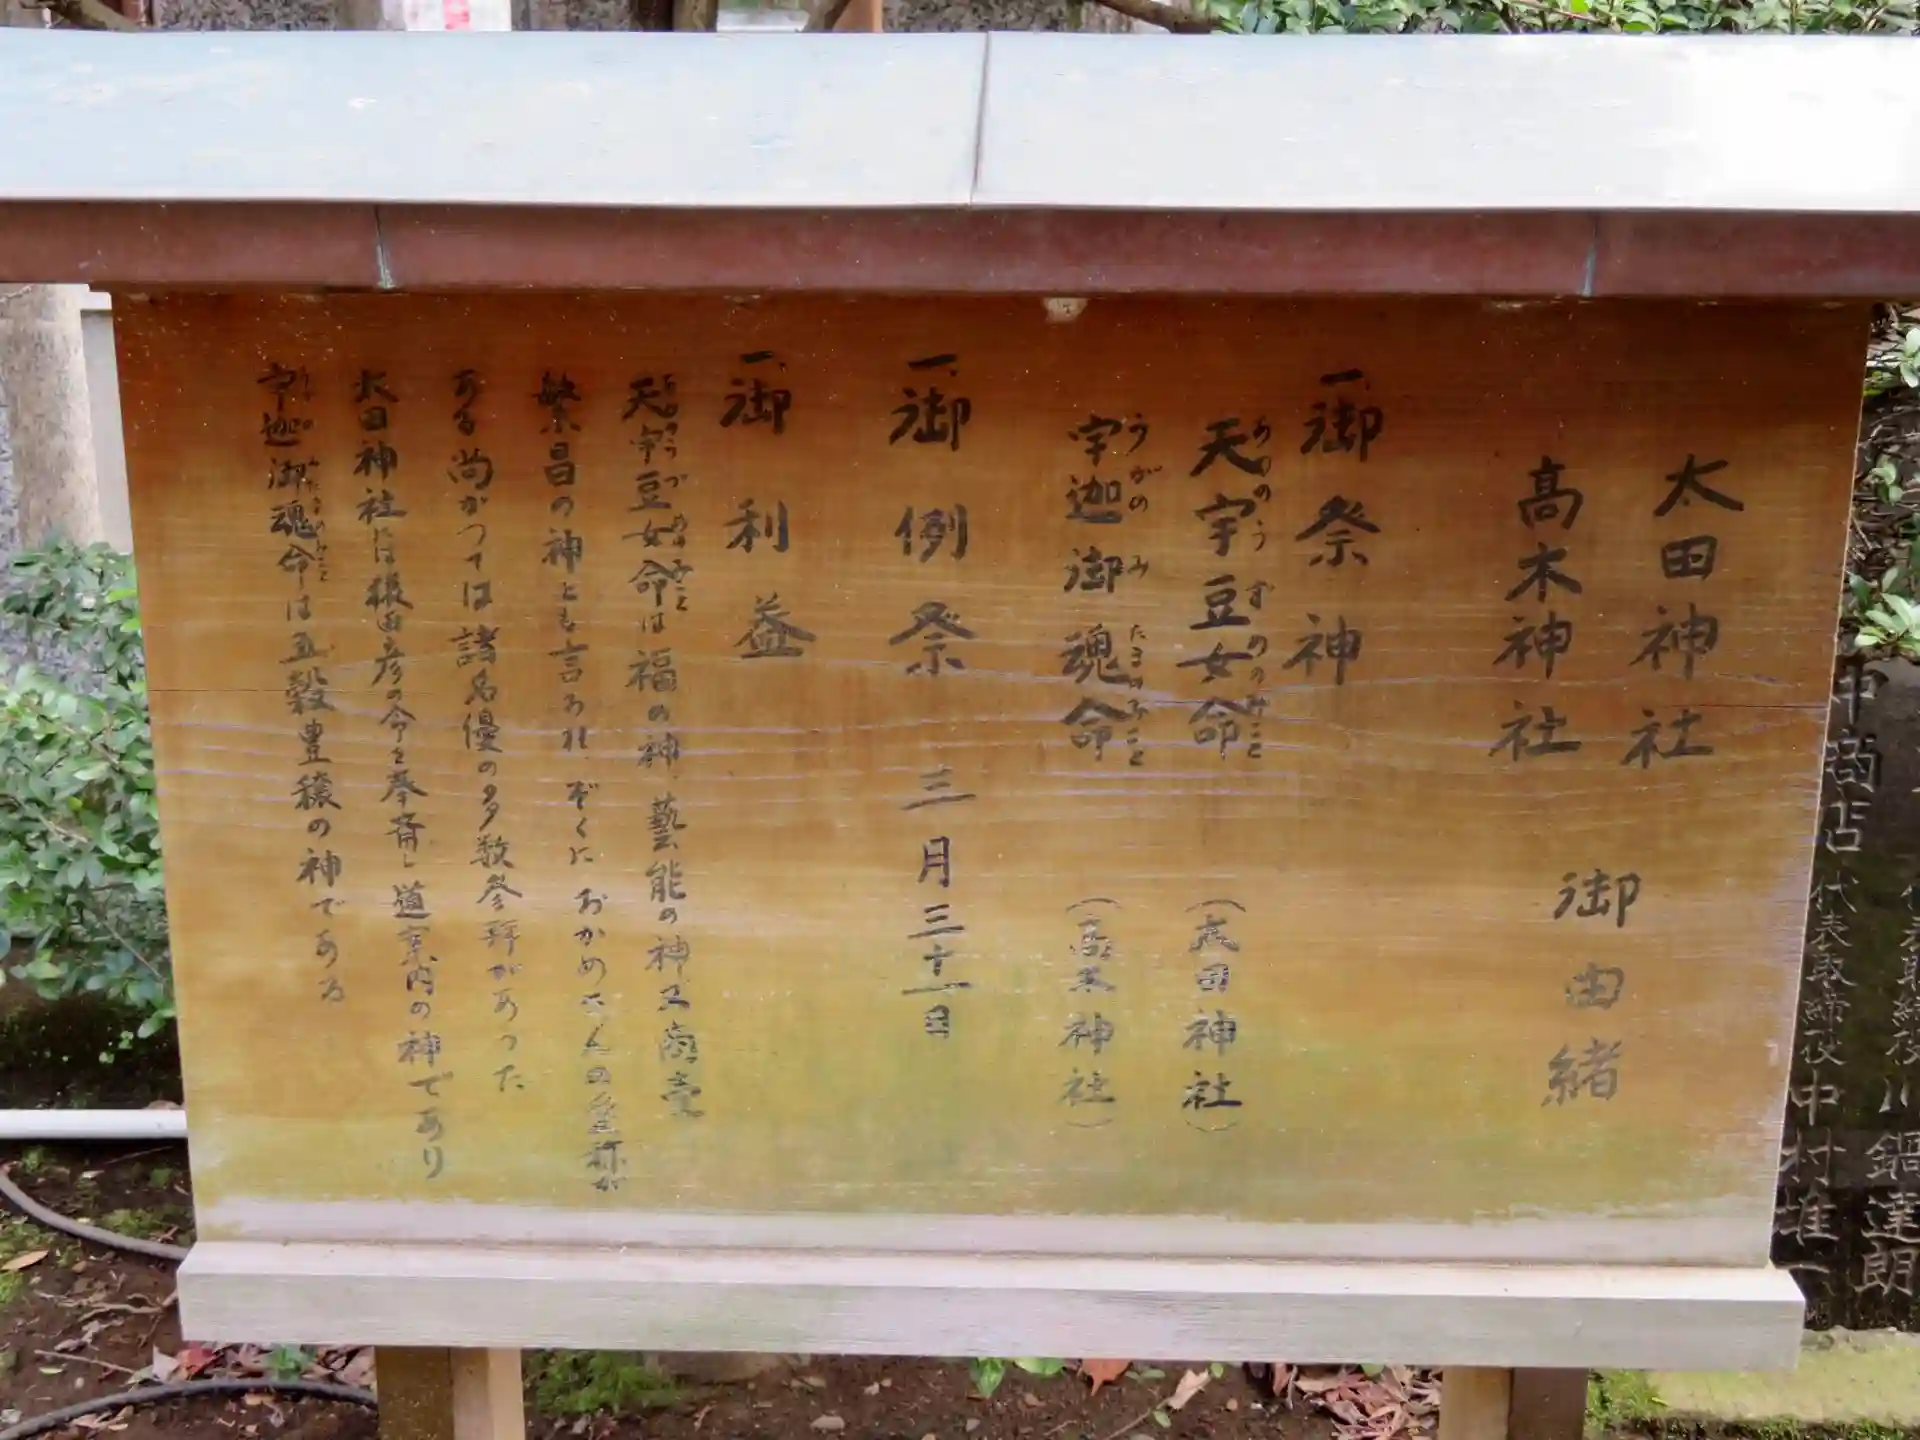 太田神社
高木神社
御由緒
一、御祭神
天宇豆女命
あめのうずめのみこと
(太田神社)
宇迦御魂命
うがのみたまのみこと
(高木神社)
一、御例祭 三月三十一日
一、御利益
天宇豆女命は福の神、藝能の神、又商売
繁昌の神とも言われ、ぞくにおかめさんの愛称が
ある尚かつては諸名優の多数参拝があった
太田神社には猿田彦の命を奉斎し道案内の神であり
宇迦御魂命は五穀豊穣の神である
中商店 代表取締役中村雄一
代表取締役川鍋達朗